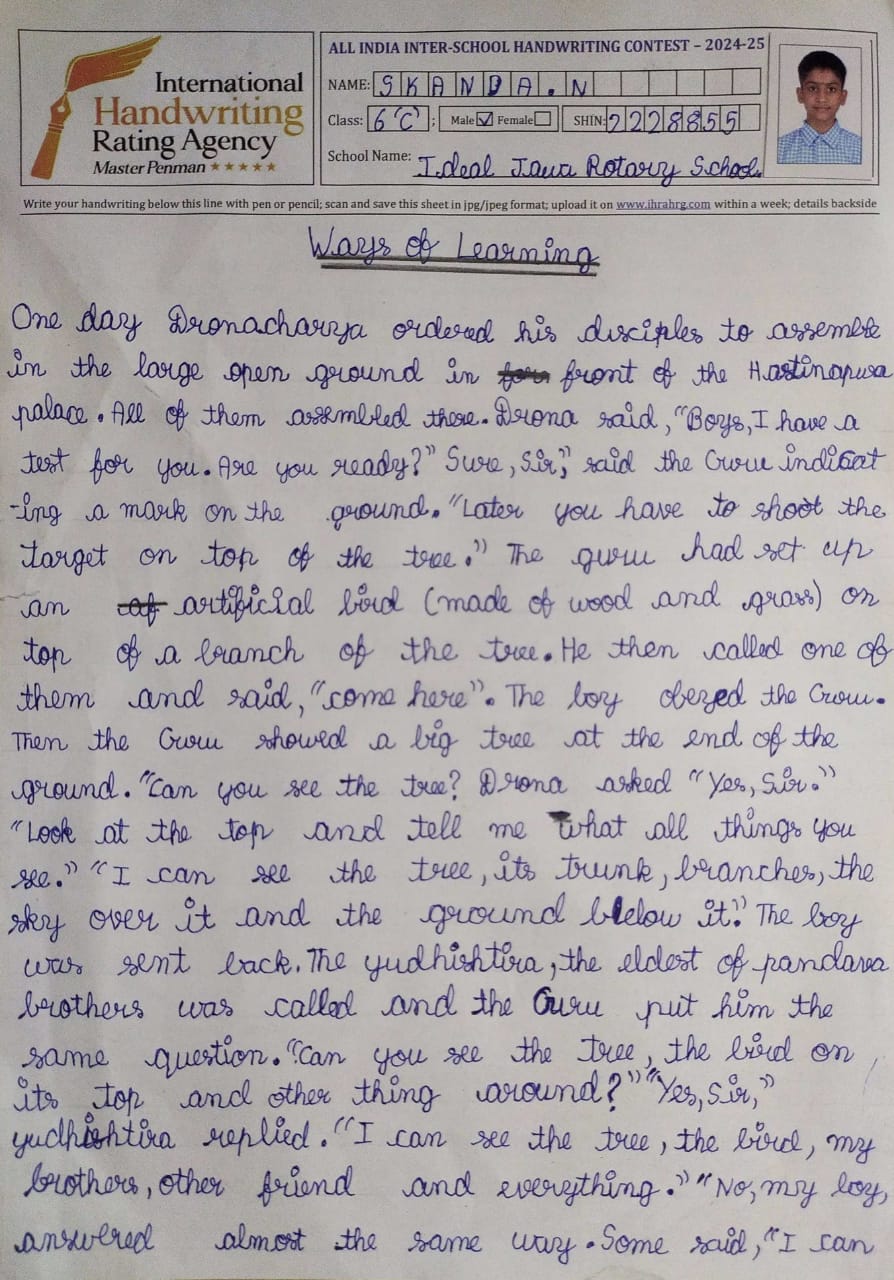 ALL INDIA INTER-SCHOOL HANDWRITING CONTEST – 2024-25
International
Handwriting
Rating Agency
Master Penman ★★★★★
NAME: SKANDA.N
Class: 6 'C' ; Male ☑ Female ☐ SHIN: 2228855
School Name: Ideal Jawa Rotary School
Write your handwriting below this line with pen or pencil; scan and save this sheet in jpg/jpeg format; upload it on www.ihrahrg.com within a week; details backside
Ways of Learning
One day Dronacharya ordered his disciples to assemble
in the large open ground in front of the Hastinapura
palace. All of them assembled there. Drona said, "Boys, I have a
test for you. Are you ready?" Sure, Sir," said the Guru indicat
-ing a mark on the ground. "Later you have to shoot the
target on top of the tree." The guru had set up
an artificial bird (made of wood and grass) on
top of a branch of the tree. He then called one of
them and said, "come here". The boy obeyed the Guru.
Then the Guru showed a big tree at the end of the
ground. "Can you see the tree? Drona asked "Yes, Sir."
"Look at the top and tell me what all things you
see." "I can see the tree, its trunk, branches, the
sky over it and the ground blelow it." The boy
was sent back. The yudhishtira, the eldest of pandava
brothers was called and the Guru put him the
same question. "Can you see the tree, the bird on
its top and other thing around?" "Yes, Sir,"
yudhishtira replied. "I can see the tree, the bird, my
brothers, other friend and everything." "No, my boy,
answered almost the same way. Some said, "I can